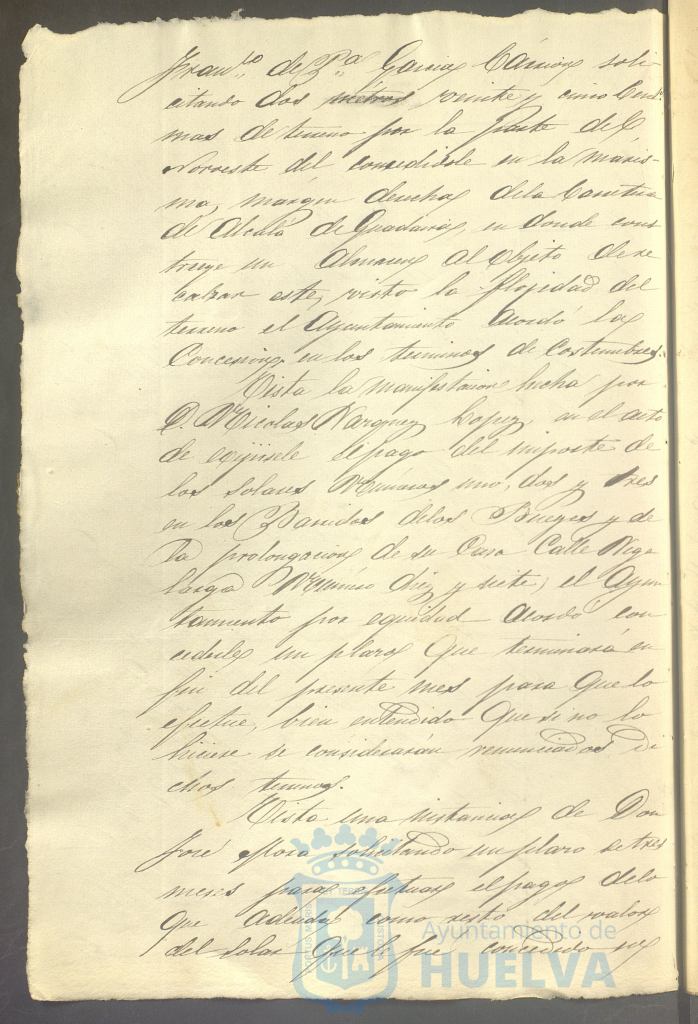 Fran.co de P.a Garcia Carrión soli-
citando dos metros veinte y cinco cent.
mas de terreno por la parte del
Noroeste del concedidole en la maris-
ma, margen derecha dela Carretera
de Alcalá de Guadaira, en donde cons
truye un Almacen al objeto de re
calzar este, visto la flojedad del
terreno el Ayuntamiento acordó la
Concesion en los terminos de costumbre.
Vista la manifestacion hecha por
D. Nicolas Vazquez Lopez, en el acto
de exijirsele el pago del importe de
los solares Numeros uno, dos y tres
en los Barridos delos Bueyes y de
la prolongacion de su Casa Calle Vega
larga Numero diez y siete, el Ayun
tamiento por equidad acordó con
cederle un plazo que terminará en
fin del presente mes para que lo
efectue, bien entendido que si no lo
hiciere se considerarán renunciados di
chos terrenos.
Vista una instancia de Don
José Mora solicitando un plazo de tres
meses para efectuar el pago delo
que adeuda como resto del valor
del solar que le fue concedido en
Ayuntamiento de
HUELVA